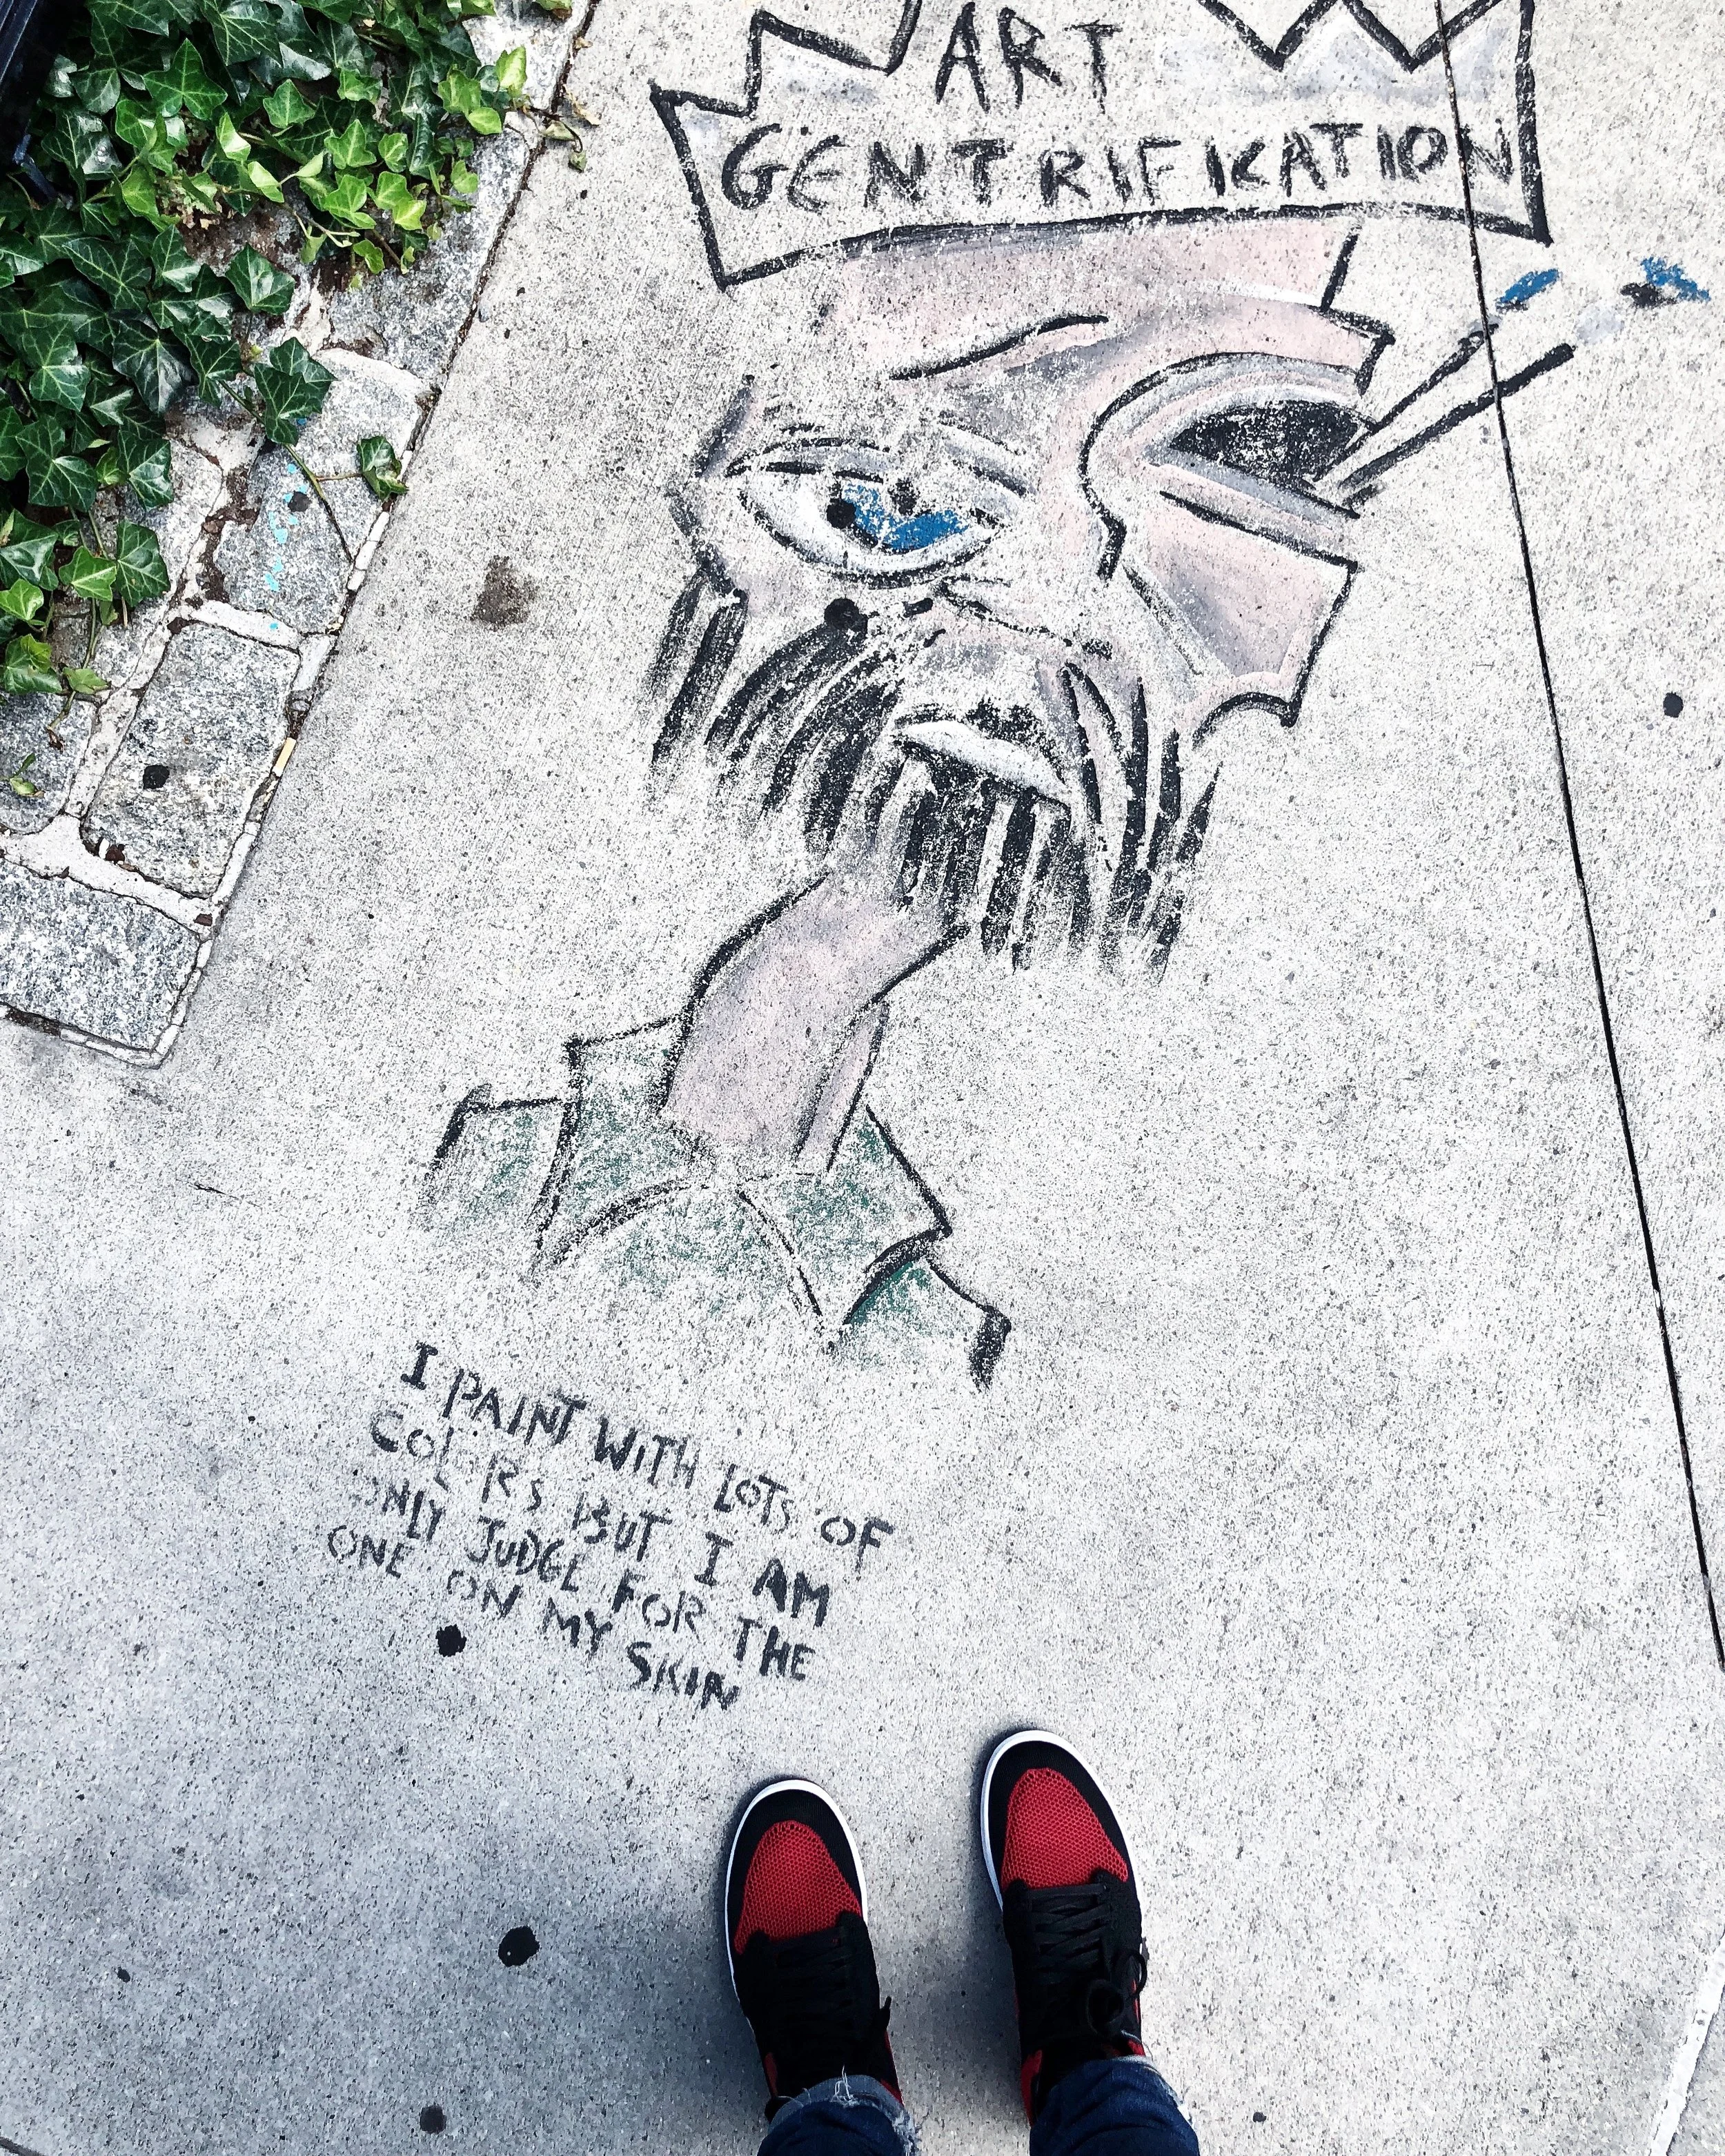 ART
GENTRIFICATION
I PAINT WITH LOTS OF
COLORS BUT I AM
ONLY JUDGE FOR THE
ONE ON MY SKIN